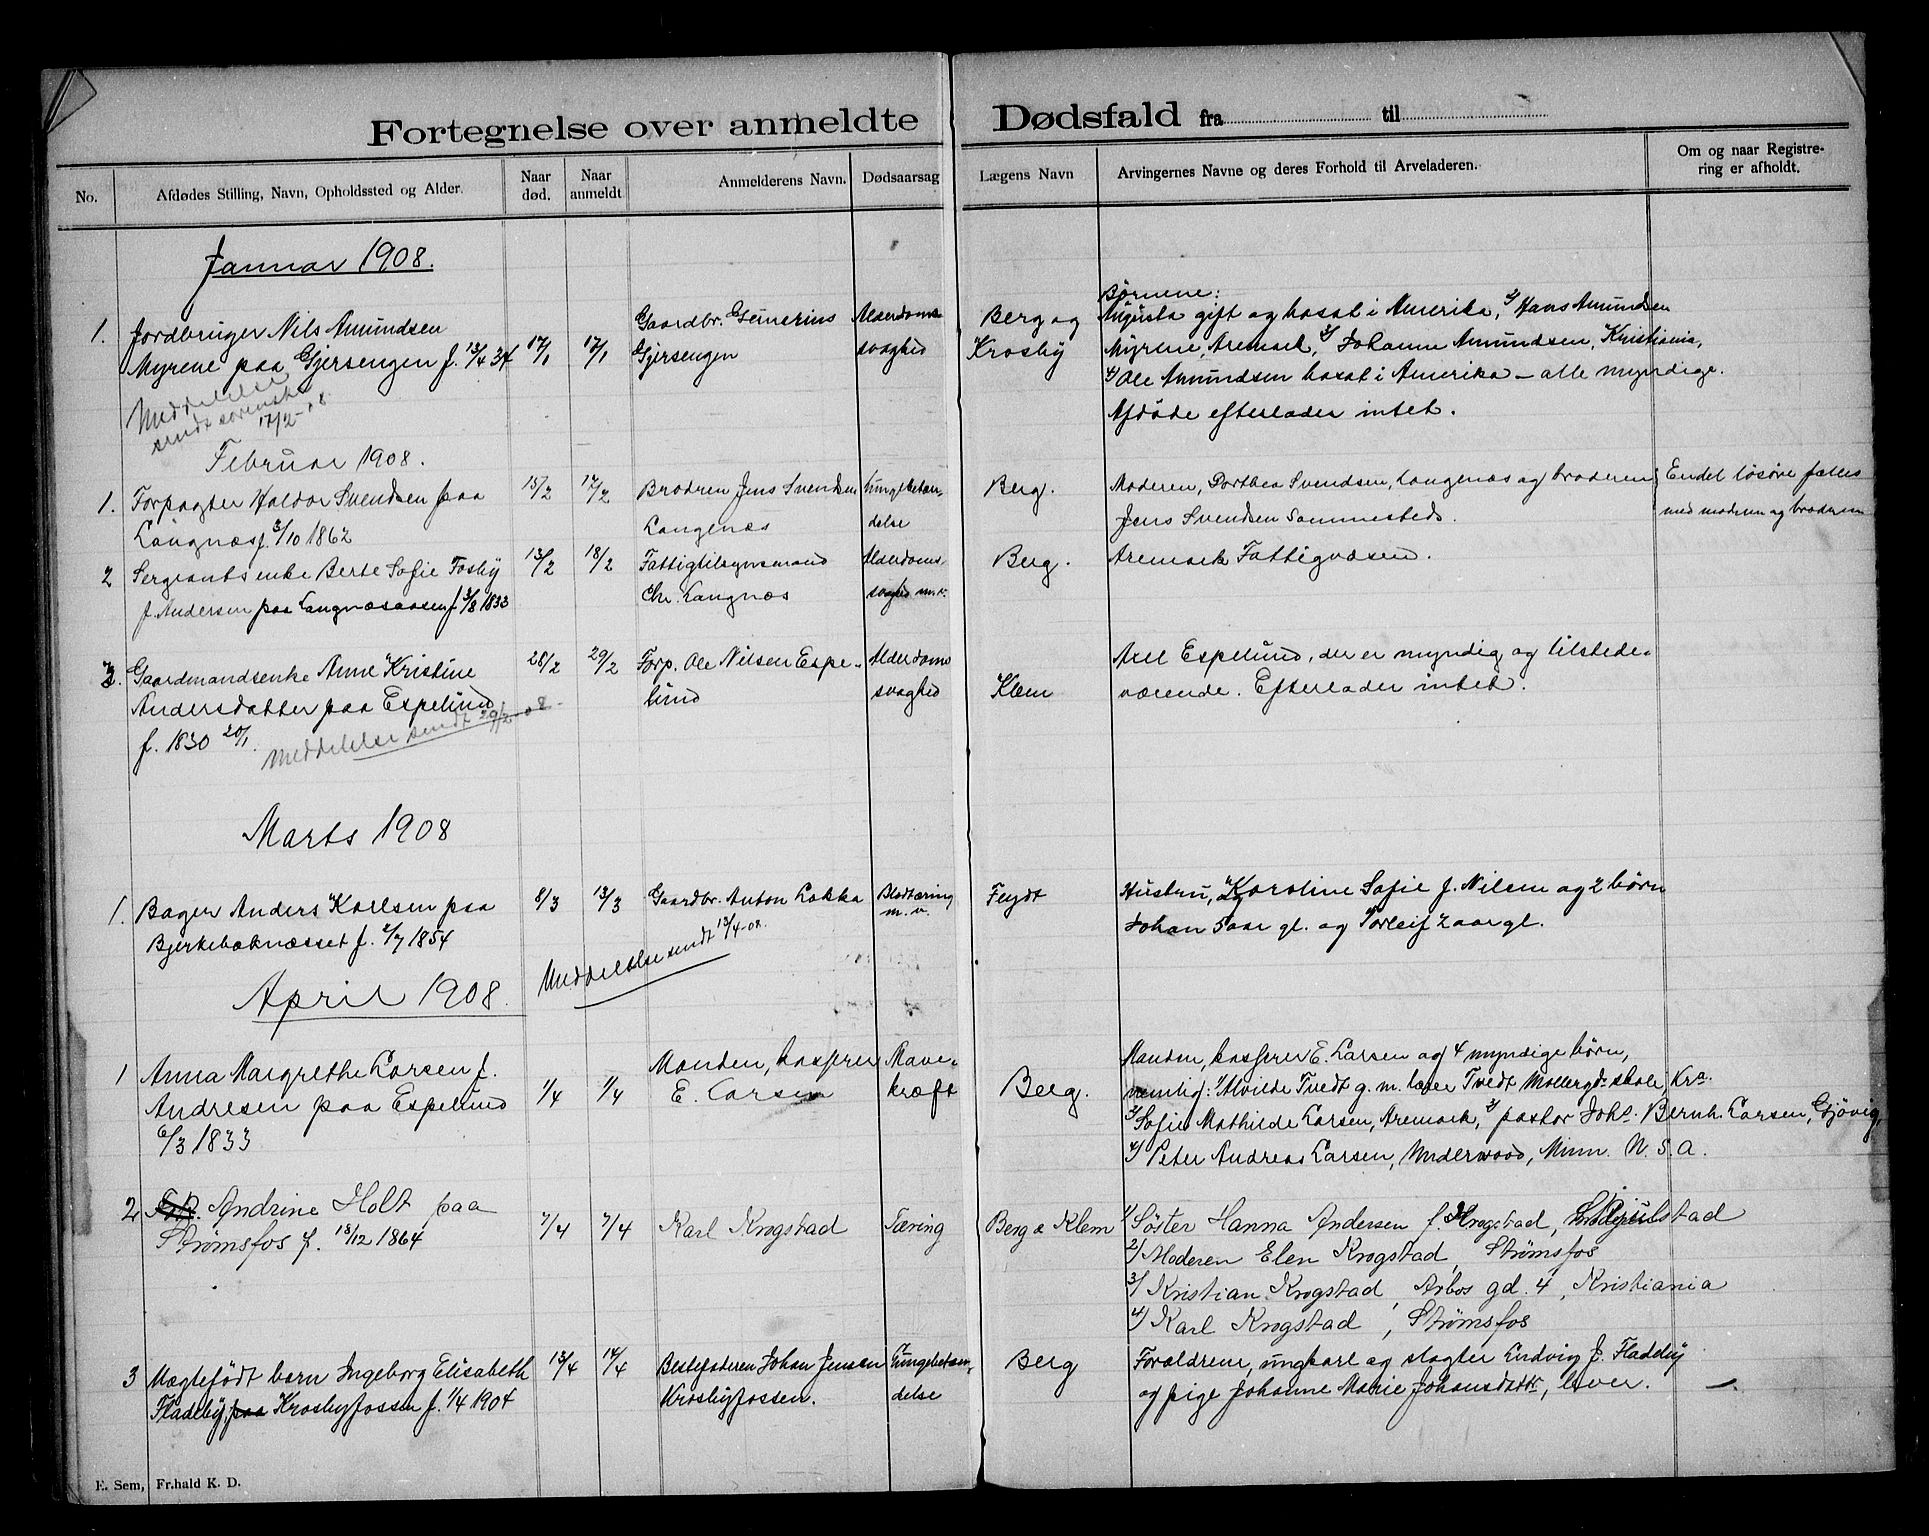 Fortegnelse over anmeldte Dødsfald fra til
No.
Afdødes Stilling, Navn, Opholdssted og Alder.
Naar død.
Naar anmeldt
Anmelderens Navn.
Dødsaarsag
Lægens Navn
Arvingernes Navne og deres Forhold til Arveladeren.
Om og naar Registre-
ring er afholdt.
Januar 1908.
1. Jordbruger Nils Amundsen
Myrene paa Gjersengen f. 13/4 34
17/1
17/1
Gaardbr. Gunerius
Gjersengen
Alderdoms
svaghed
Berg og
Krosby
Børnene:
Augusta gift og bosat i Amerika, 2/ Hans Amundsen
Myrene, Aremark, 3/ Johanne Amundsen, Kristiania,
4/ Ole Amundsen bosat i Amerika – alle myndige.
Afdøde efterlader intet.
Meddelelse
sendt sorenskr
17/2-08
Februar 1908.
1. Forpagter Haldor Svendsen paa
Langnæs f. 3/10 1862
15/2
17/2
Brodren Jens Svendsen
Langenæs
Lungebetæn-
delse
Berg.
Moderen, Dorthea Svendsen, Langenæs og broderen
Jens Svendsen sammesteds.
Endel løsøre fælles
med moderen og broderen
2 Sergeantsenke Berte Sofie Fosby
f. Andersen paa Langnæsaasen f. 3/8 1833
13/2
18/2
Fattigtilsynsmand
Chr. Langnæs
Alderdoms-
svaghed m.v.
Berg.
Aremark Fattigvæsen.
3. Gaardmandsenke Anne Kristine
Andersdatter paa Espelund
f. 1830 20/1.
28/2
29/2
Forp. Ole Nilsen Espe-
lund
Alderdoms
svaghed
Klem
Axel Espelund, der er myndig og tilstede-
værende. Efterlader intet.
Meddelelse sendt 29/2-08-
Marts 1908
1. Bager Anders Karlsen paa
Bjerkebaknæsset f. 2/7 1854
8/3
13/3
Gaardbr. Anton Lakka
Blodtæring
m.v.
Feydt
Hustru, Karoline Sofie f. Nilsen og 2 børn
Johan 5 aar gl. og Torleif 2 aar gl.
Meddelelse sendt 13/4-08.
April 1908.
1 Anna Margrethe Larsen f.
Andresen paa Espelund
6/3 1833
1/4
1/4
Manden, kasserer
E. Larsen
Mave-
kræft
Berg.
Manden, kasserer E. Larsen og 4 myndige børn,
nemlig: 1/ Alvilde Tvedt g. m. lærer Tvedt Møllergd. skole, Kra.
2/ Sofie Mathilde Larsen, Aremark, 3/ pastor Johs. Bernh. Larsen, Gjøvig,
4/ Peter Andreas Larsen, Underwood, Minn. N. S. A.
2 Andrine Holt paa
Strømsfos f. 18/12 1864
7/4
7/4
Karl Krogstad
Tæring
Berg & Klem
1/ Søster Hanna Andersen f. Krogstad,
2/ Moderen Elen Krogstad, Strømsfos
3/ Kristian Krogstad, Arbos gd. 4, Kristiania
4/ Karl Krogstad, Strømsfos
3 Uægtefødt barn Ingeborg Elisabeth
Fladeby, paa Krosbyfossen f. 1/4 1904
13/4
14/4
Bestefaderen Johan Jensen
Krosbyfossen.
Lungebetæn-
delse
Berg
Forældrene, ungkarl og slagter Ludvig J. Fladeby
og pige Johanne Marie Johansdattr, lever. –
E. Sem, Fr.hald K. D.